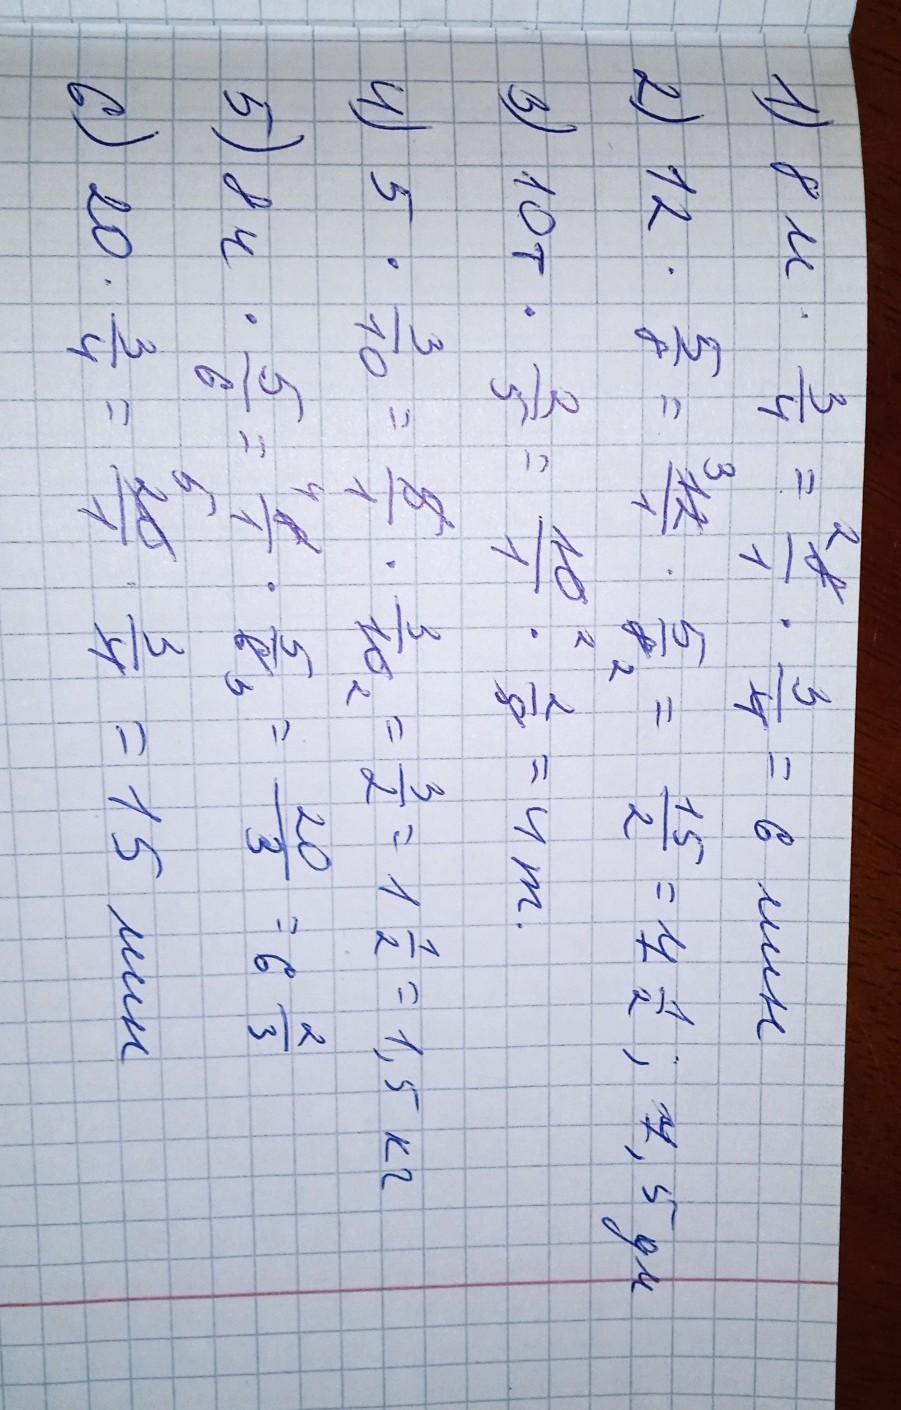 1) 8 м · 3/4 = 8/1 2 · 3/4 = 6 мин
2) 12 · 5/8 = 3 12/1 · 5/8 2 = 15/2 = 7 1/2; 7,5 дм
3) 10т · 2/5 = 10/1 2 · 2/5 = 4 т.
4) 5 · 3/10 = 5/1 · 3/10 2 = 3/2 = 1 1/2 = 1,5 кг
5) 8 ч · 5/6 = 4 8/1 · 5/6 3 = 20/3 = 6 2/3
6) 20 · 3/4 = 5 20/1 · 3/4 = 15 мин